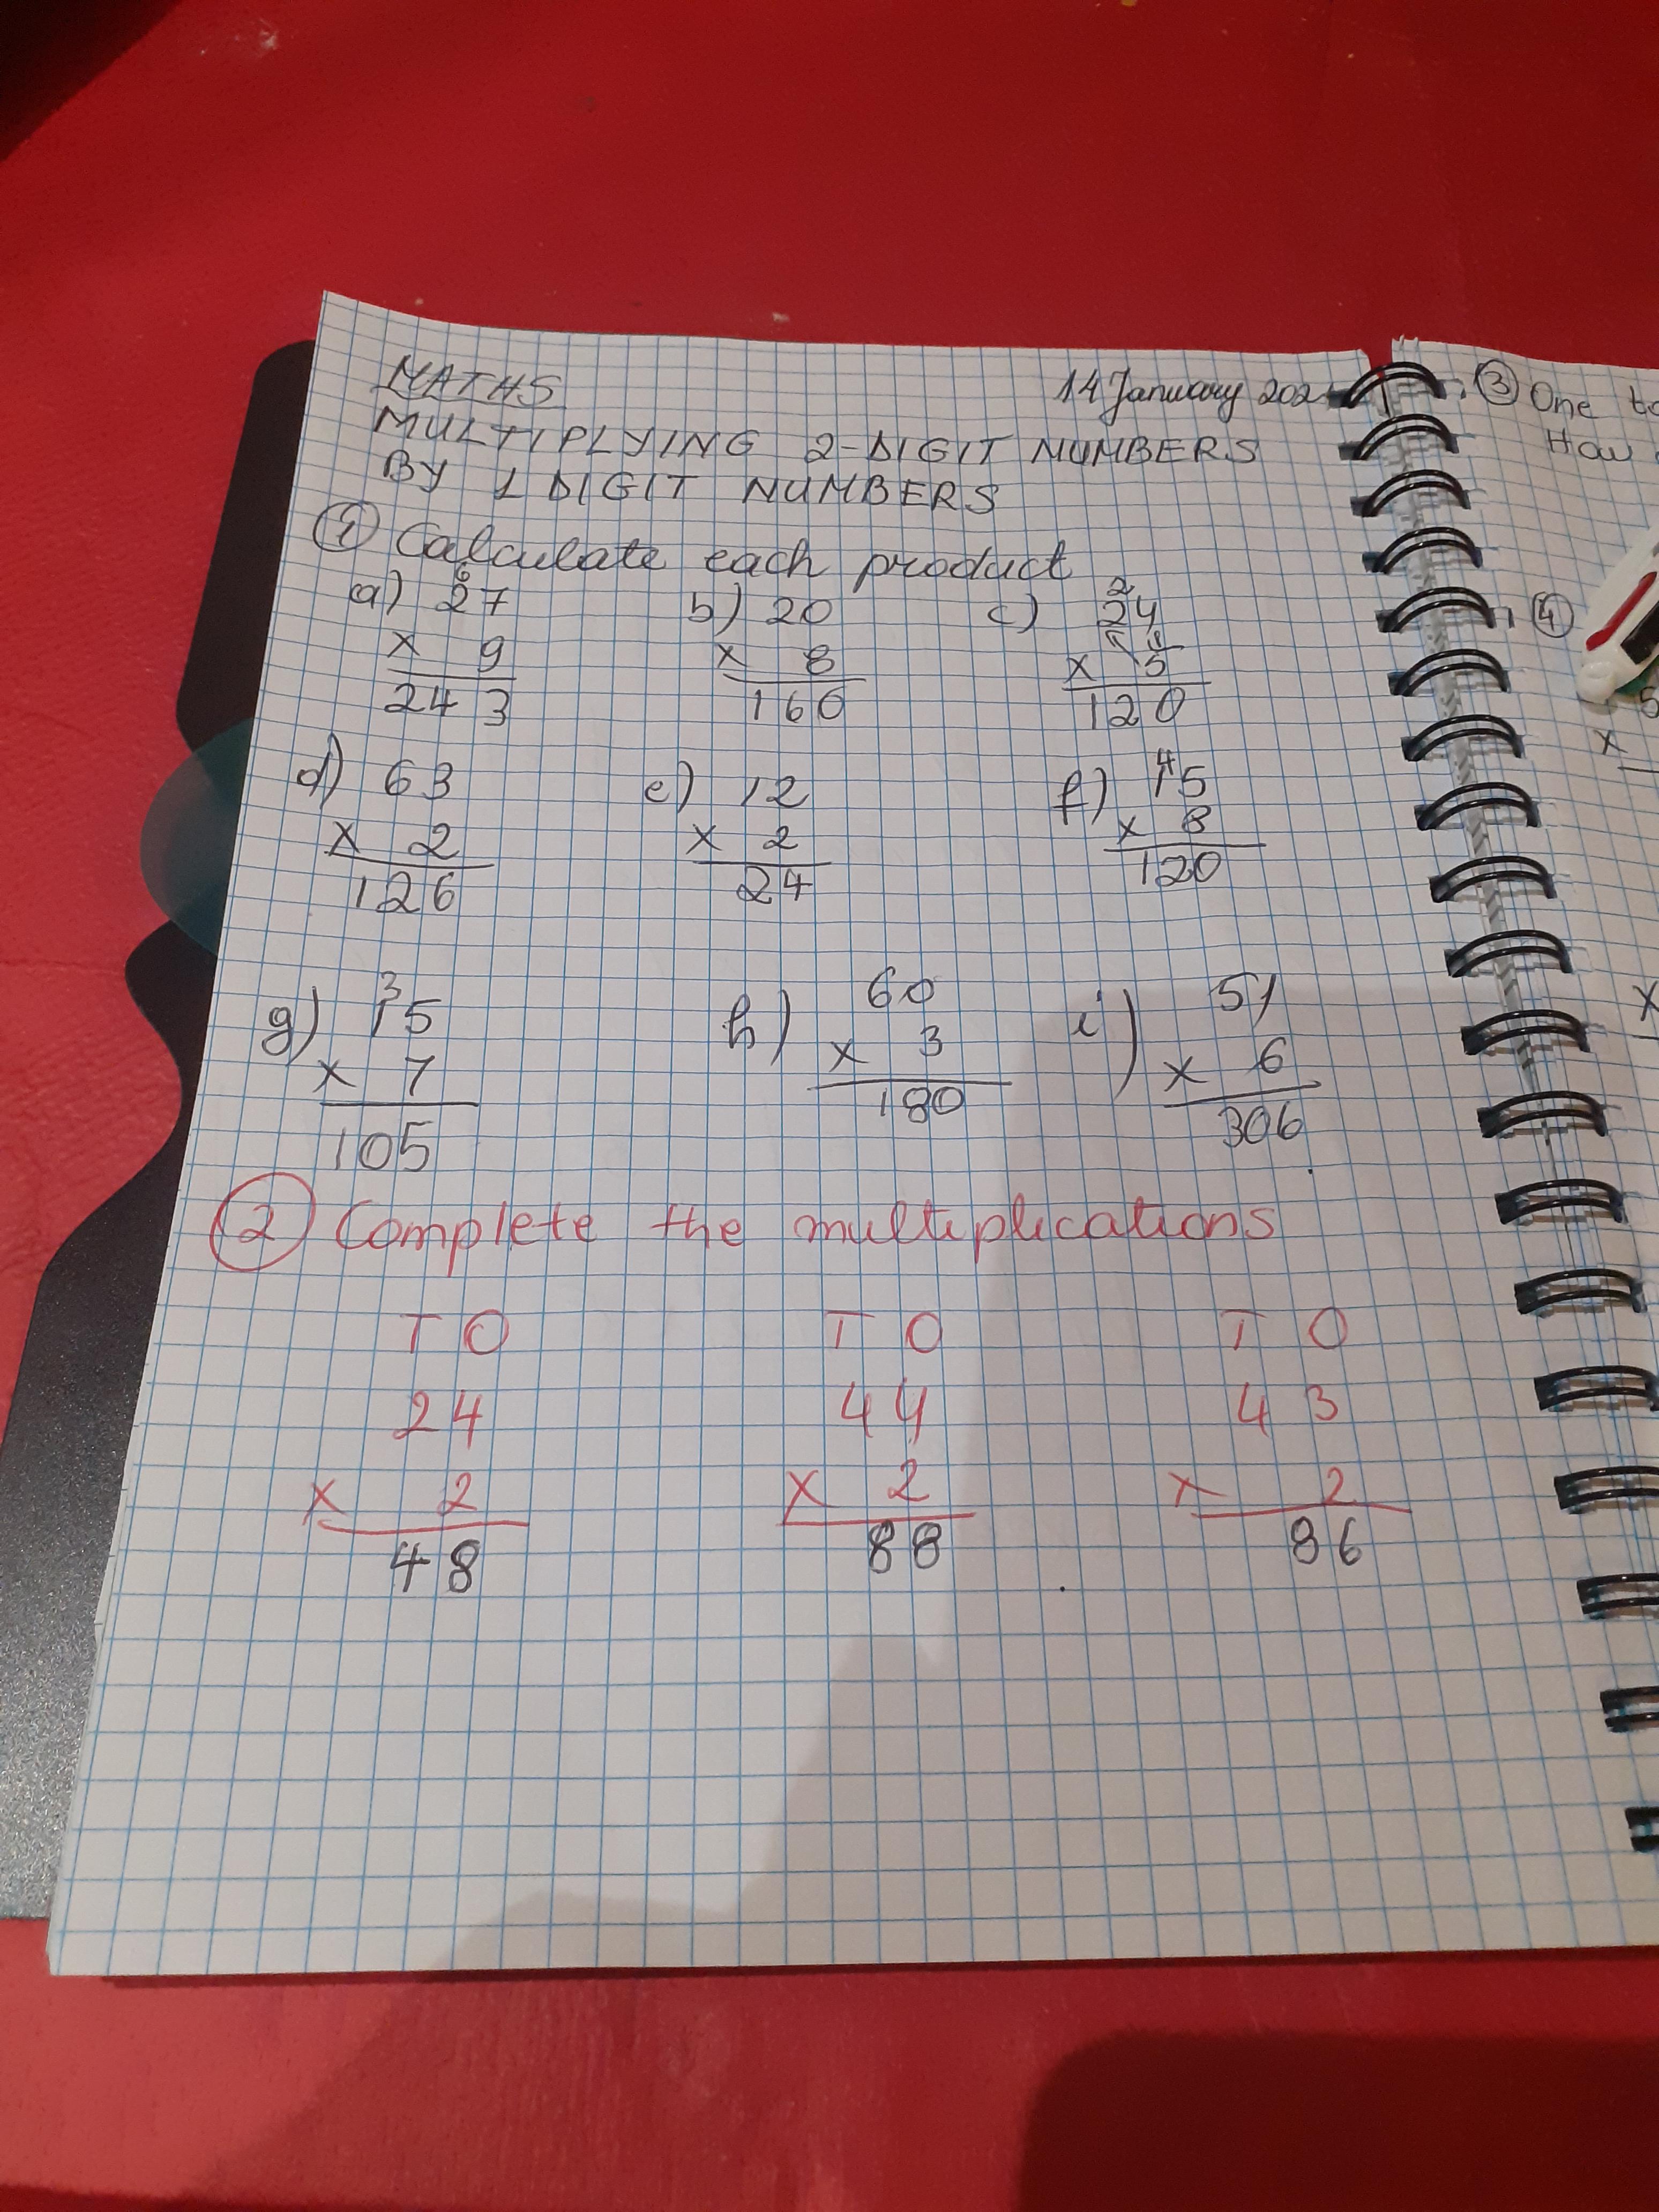 MATHS
14 January 202
MULTIPLYING 2-DIGIT NUMBERS
BY 1 DIGIT NUMBERS
① Calculate each product
6 2
a) 27 b) 20 c) 24
x 9 x 8 x 5
243 160 120
4
d) 63 e) 12 f) 15
x 2 x 2 x 8
126 24 120
3
g) 15 h) 60 i) 51
x 7 x 3 x 6
105 180 306
② Complete the multiplications
T O T O T O
24 44 43
x 2 x 2 x 2
48 88 86
③ One
How
④
5
x
x